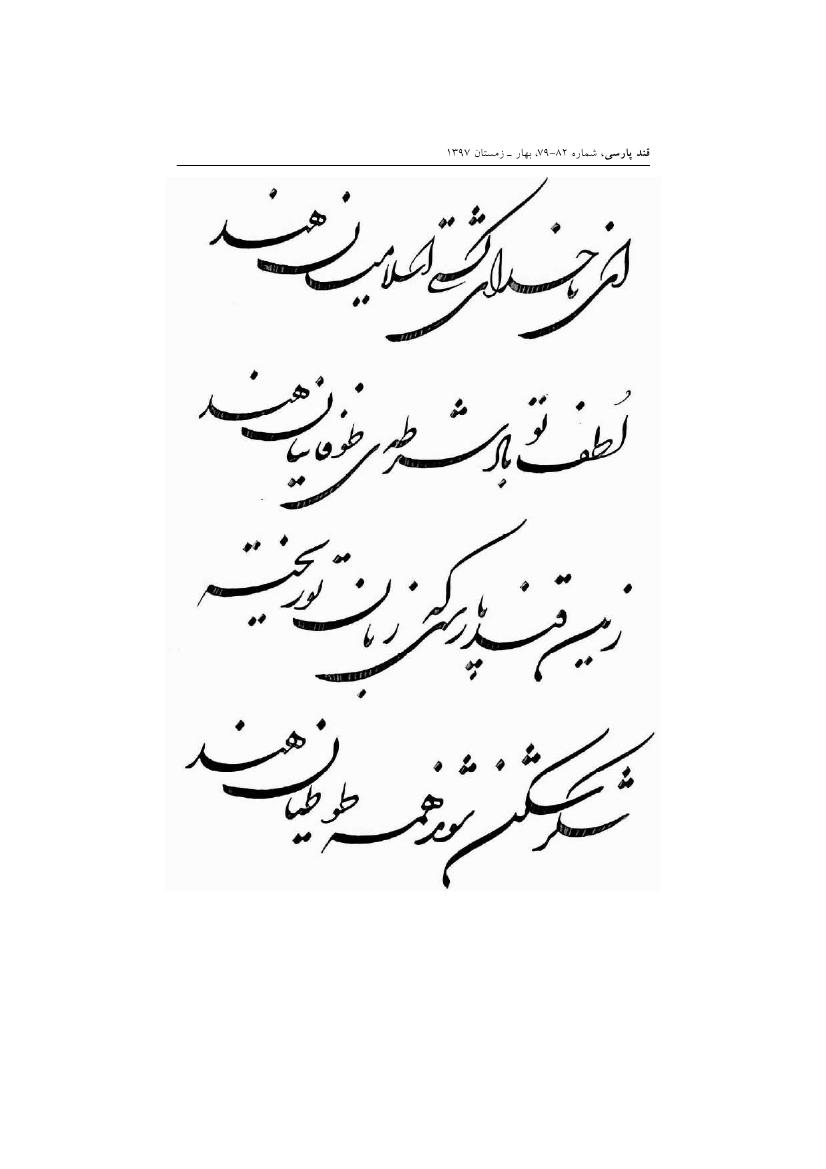 قند پارسی، شماره ۸۲-۷۹، بهار ـ زمستان ۱۳۹۷
ای ناخدای کشتی اسلامیان هند
لُطف تو باد شرطه‌ی طوفانیان هند
زین قند پارسی که زبان تو ریخته
شکر شکن شوند همه طوطیان هند